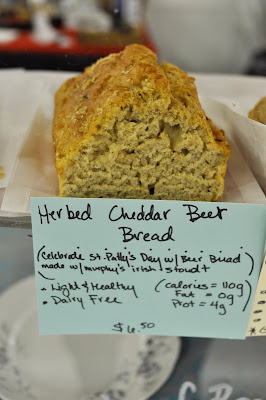 Herbed Cheddar Beer
Bread
(Celebrate St. Patty's Day w/ Beer Bread
made w/ murphy's irish stoudt)
* Light & Healthy
* Dairy Free
(calories = 110g
Fat = 0g
Prot = 4g)
$6.50